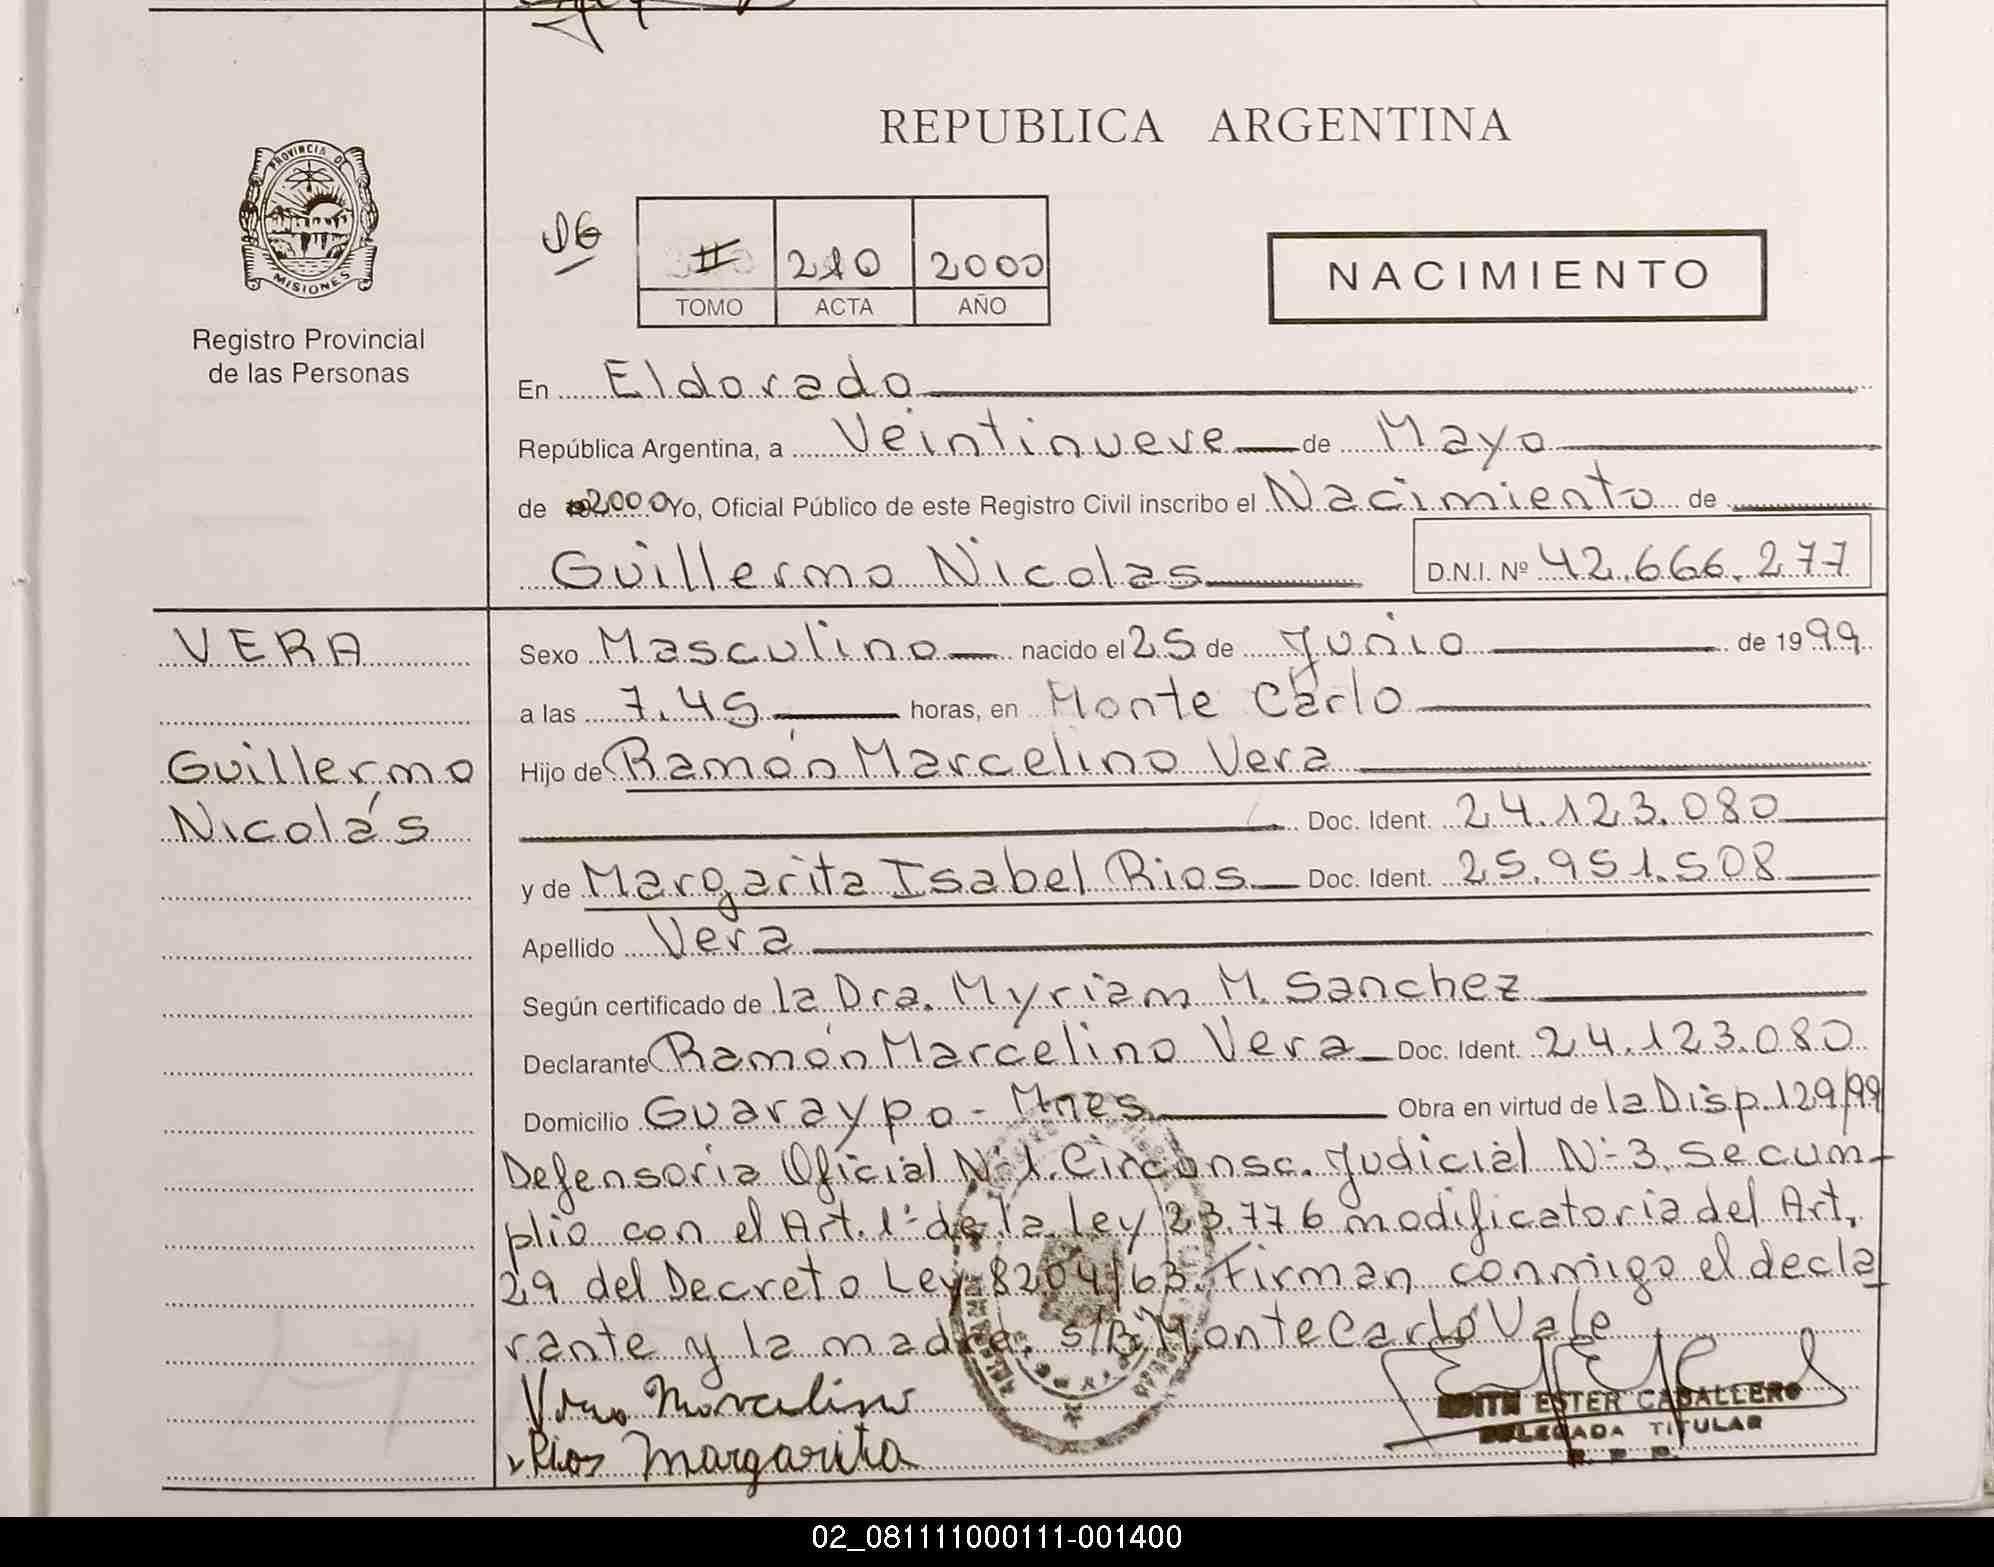 REPUBLICA ARGENTINA
PROVINCIA DE
MISIONES
Registro Provincial
de las Personas
II 210 2000
TOMO ACTA AÑO
NACIMIENTO
En Eldorado
República Argentina, a Veintinueve de Mayo
de 2000 Yo, Oficial Público de este Registro Civil inscribo el Nacimiento de
Guillermo Nicolas D.N.I. Nº 42.666.277
VERA
Guillermo
Nicolás
Sexo Masculino nacido el 25 de Junio de 1999
a las 7.45 horas, en Monte Carlo
Hijo de Ramón Marcelino Vera
Doc. Ident. 24.123.080
y de Margarita Isabel Rios Doc. Ident. 25.951.508
Apellido Vera
Según certificado de la Dra. Myriam M. Sanchez
Declarante Ramón Marcelino Vera Doc. Ident. 24.123.080
Domicilio Guaraypo - Mnes Obra en virtud de la Disp. 129/99
Defensoria Oficial Nº 1. Circunsc. Judicial Nº 3. Se cum-
plio con el Art. 1º de la ley 23.776 modificatoria del Art.
29 del Decreto Ley 8204/63. Firman conmigo el decla
rante y la madre. s/B Monte Carlo Vale
Vera Marcelino
Rios Margarita
EDITH ESTER CABALLERO
DELEGADA TITULAR
R. P. P.
02_081111000111-001400